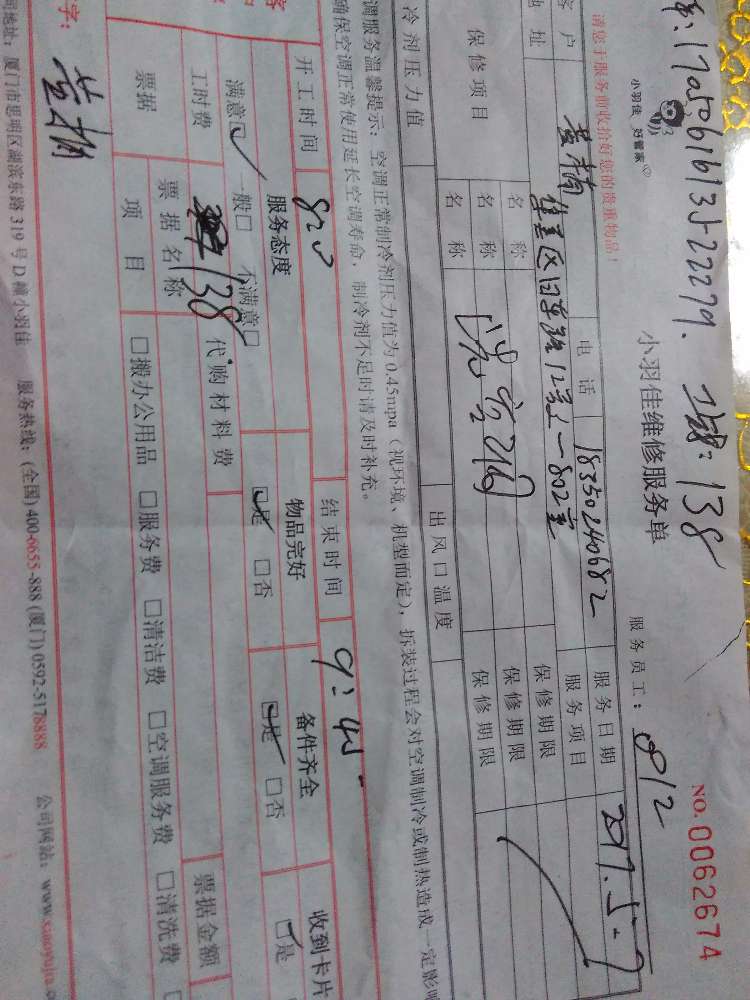 :17a5061613522279. 工钱:138
小羽佳 好管家
小羽佳维修服务单
NO. 0062674
请您于服务前收拾好您的贵重物品!
服务员工: 812
客户 黄清 电话 18350240682 服务日期 2017.5.7
地址 集美区 12号 802室 服务项目
保修项目 名称 保修期限
名称 洗空调 保修期限
名称 保修期限
冷剂压力值 出风口温度
调服务温馨提示: 空调正常制冷剂压力值为 0.45mpa (视环境、机型而定), 拆装过程会对空调制冷或制热造成一定影响
确保空调正常使用延长空调寿命, 制冷剂不足时请及时补充。
开工时间 820 结束时间 9:45
服务态度 物品完好 备件齐全 收到卡片
满意☑ 一般☐ 不满意☐ ☑是 ☐否 ☑是 ☐否 ☑是
工时费 138 代购材料费
票据 票据名称 票据金额
项目 ☐搬办公用品 ☐服务费 ☐清洁费 ☐空调服务费 ☐清洗费
字:
司地址: 厦门市思明区湖滨东路 319 号 D 幢小羽佳 服务热线: (全国) 400-6655-888 (厦门) 0592-5178888 公司网站: www.xiaoyujia.c